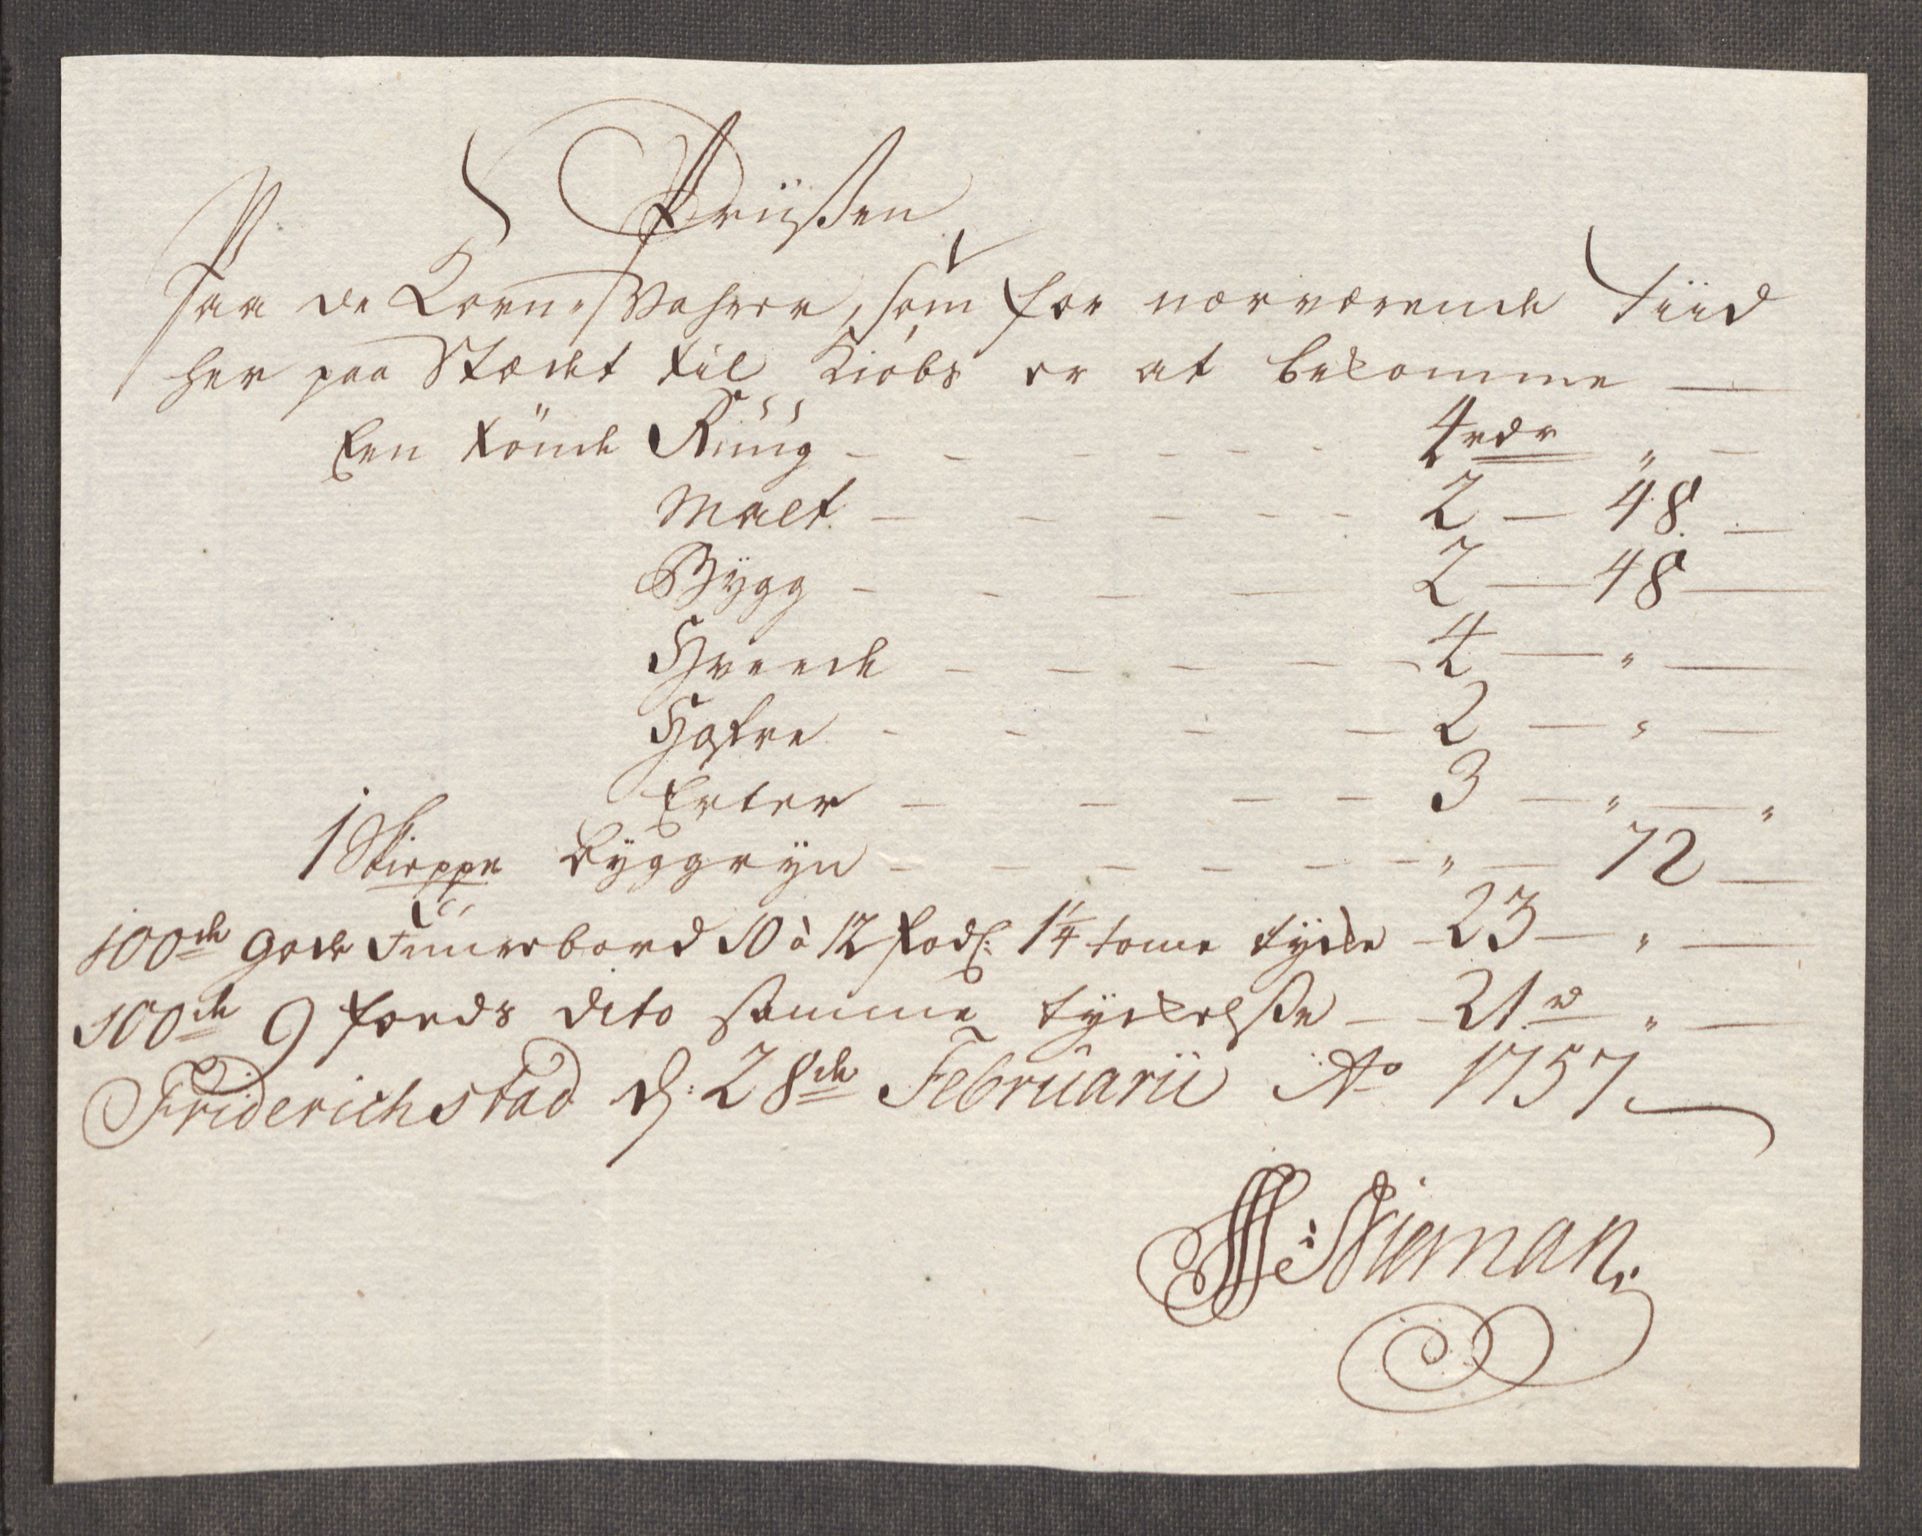 Priißen
Paa de Korn-Vahrer, som for nærværende Tiid
her paa Stædet til Kiøbs er at bekomme —
Een Tönde Rüüg - - - - - 4 rdr „ —
Malt - - - - - 2 — 48 —
Bygg - - - - 2 — 48 —
Hveede - - - - - 4 — „ —
Hafre - - - - 2 — „ —
Erter - - - - 3 — „ — „
1 Skieppe Byggryn - - - - - - „ — 72 —
100de gode Furrebord 10 à 12 fods 1¼ tome tycke - 23 — „ —
100de 9 foeds dito samme tyckelße - - 21 rd „ —
Friderichstad d: 28de Februarii Ao 1757
Nieman.